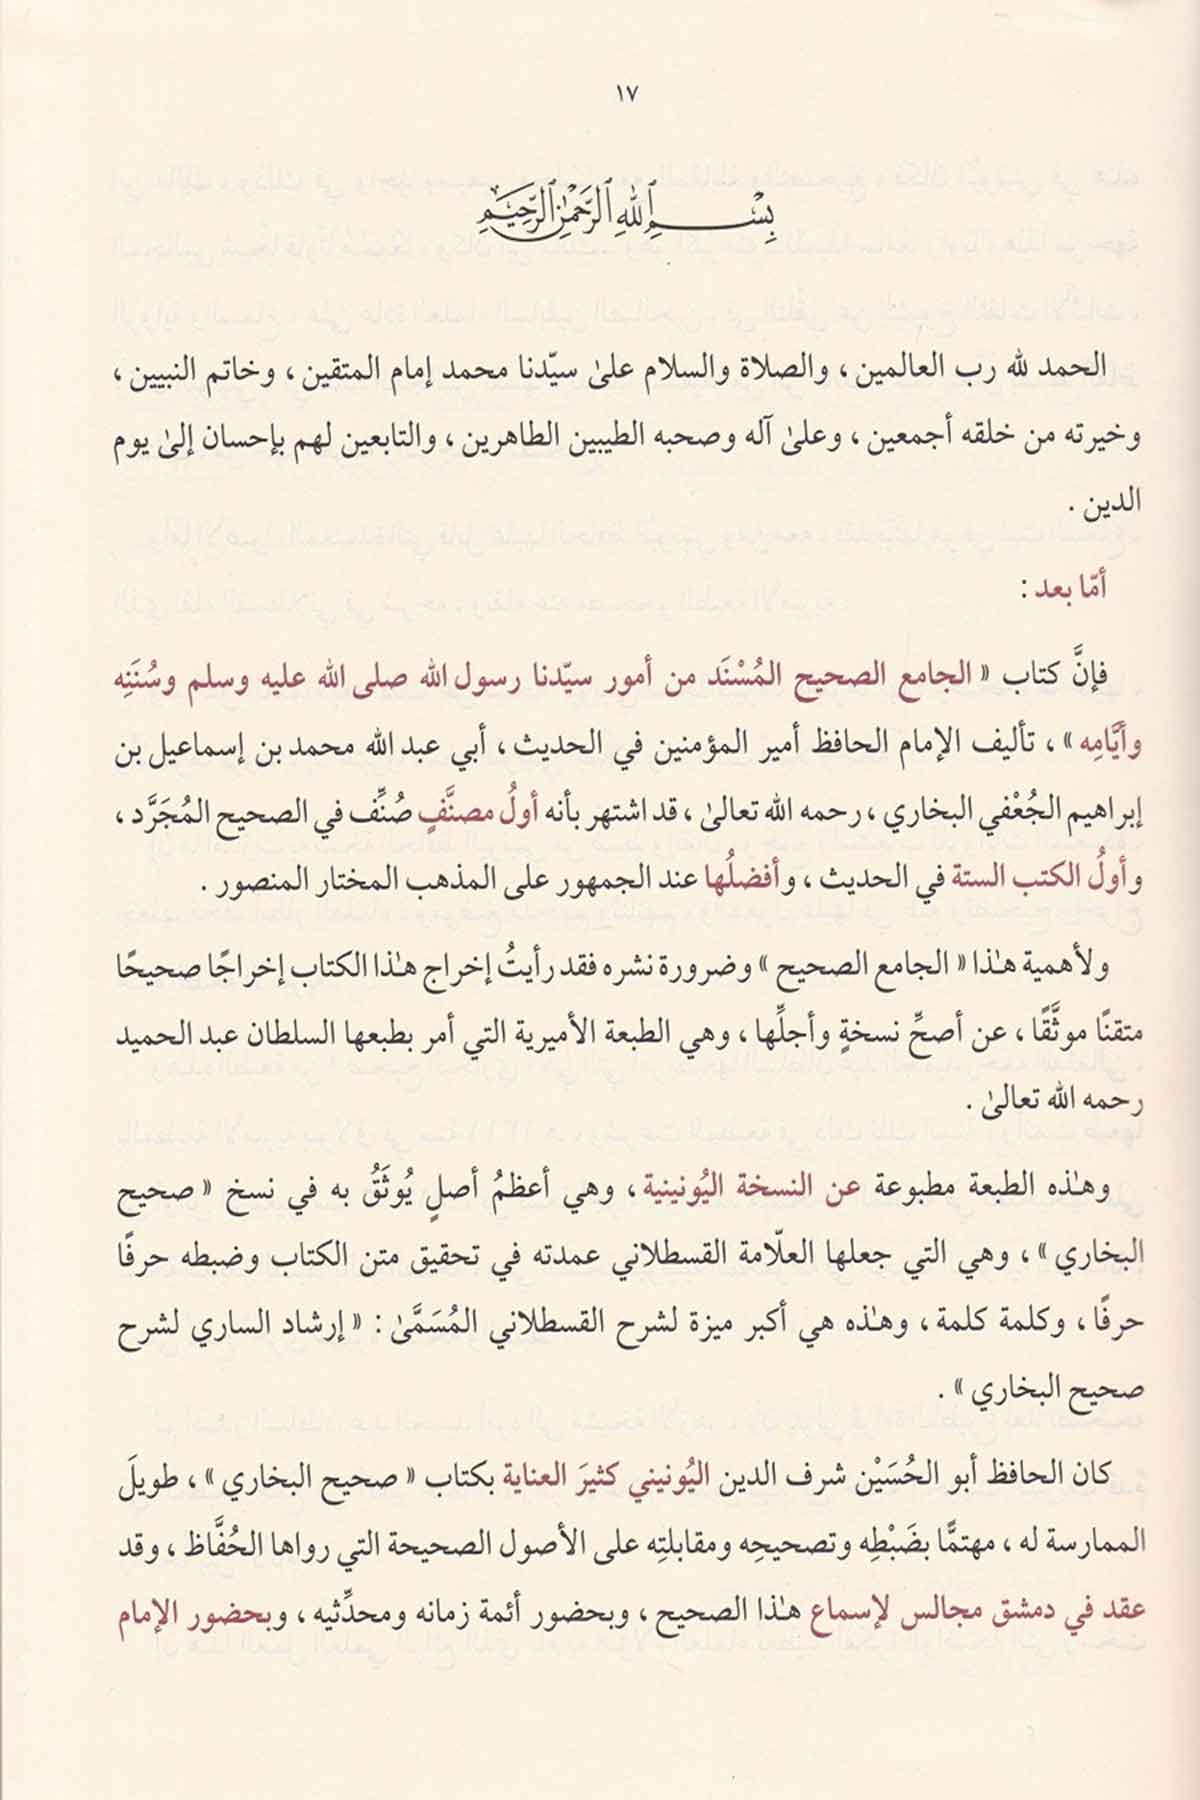 ١٧
بِسْمِ اللهِ الرَّحْمٰنِ الرَّحِيمِ
الحمد لله رب العالمين ، والصلاة والسلام علىٰ سيّدنا محمد إمام المتقين ، وخاتم النبيين ،
وخيرته من خلقه أجمعين ، وعلىٰ آله وصحبه الطيبين الطاهرين ، والتابعين لهم بإحسان إلىٰ يوم
الدين .
أمّا بعد :
فإنَّ كتاب « الجامع الصحيح المُسْنَد من أمور سيّدنا رسول الله صلى الله عليه وسلم وسُنَنِه
وأيَّامِه » ، تأليف الإمام الحافظ أمير المؤمنين في الحديث ، أبي عبد الله محمد بن إسماعيل بن
إبراهيم الجُعْفي البخاري ، رحمه الله تعالىٰ ، قد اشتهر بأنه أولُ مصنَّفٍ صُنِّف في الصحيح المُجَرَّد ،
وأولُ الكتب الستة في الحديث ، وأفضلُها عند الجمهور على المذهب المختار المنصور .
ولأهمية هـٰذا « الجامع الصحيح » وضرورة نشره فقد رأيتُ إخراج هـٰذا الكتاب إخراجًا صحيحًا
متقنًا موثَّقًا ، عن أصحِّ نسخةٍ وأجلِّها ، وهي الطبعة الأميرية التي أمر بطبعها السلطان عبد الحميد
رحمه الله تعالىٰ .
وهـٰذه الطبعة مطبوعة عن النسخة اليُونينية ، وهي أعظمُ أصلٍ يُوثَقُ به في نسخ « صحيح
البخاري » ، وهي التي جعلها العلّامة القسطلاني عمدته في تحقيق متن الكتاب وضبطه حرفًا
حرفًا ، وكلمة كلمة ، وهـٰذه هي أكبر ميزة لشرح القسطلاني المُسَمَّىٰ : « إرشاد الساري لشرح
صحيح البخاري » .
كان الحافظ أبو الحُسَيْن شرف الدين اليُونيني كثيرَ العناية بكتاب « صحيح البخاري » ، طويلَ
الممارسة له ، مهتمًّا بضَبْطِه وتصحيحِه ومقابلتِه على الأصول الصحيحة التي رواها الحُفَّاظ ، وقد
عقد في دمشق مجالس لإسماع هـٰذا الصحيح ، وبحضور أئمة زمانه ومحدِّثيه ، وبحضور الإمام